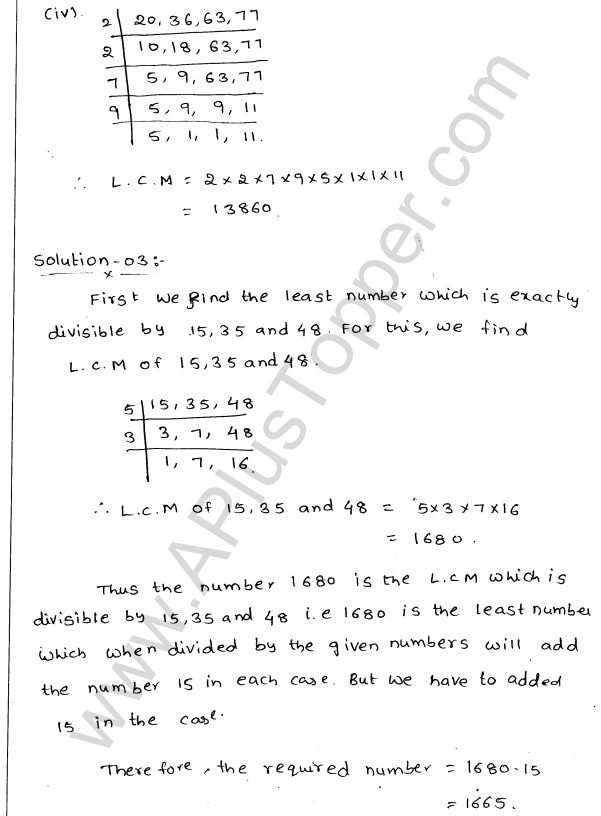 (iv). 2 | 20, 36, 63, 77
2 | 10, 18, 63, 77
7 | 5, 9, 63, 77
9 | 5, 9, 9, 11
5, 1, 1, 11.
∴ L.C.M = 2×2×7×9×5×1×1×11
= 13860.
Solution-03:-
First we find the least number which is exactly
divisible by 15, 35 and 48. For this, we find
L.C.M of 15, 35 and 48.
5 | 15, 35, 48
3 | 3, 7, 48
1, 7, 16.
∴ L.C.M of 15, 35 and 48 = 5×3×7×16
= 1680.
Thus the number 1680 is the L.C.M which is
divisible by 15, 35 and 48 i.e 1680 is the least number
which when divided by the given numbers will add
the number 15 in each case. But we have to added
15 in the case.
Therefore, the required number = 1680-15
= 1665.
www.APlusTopper.com